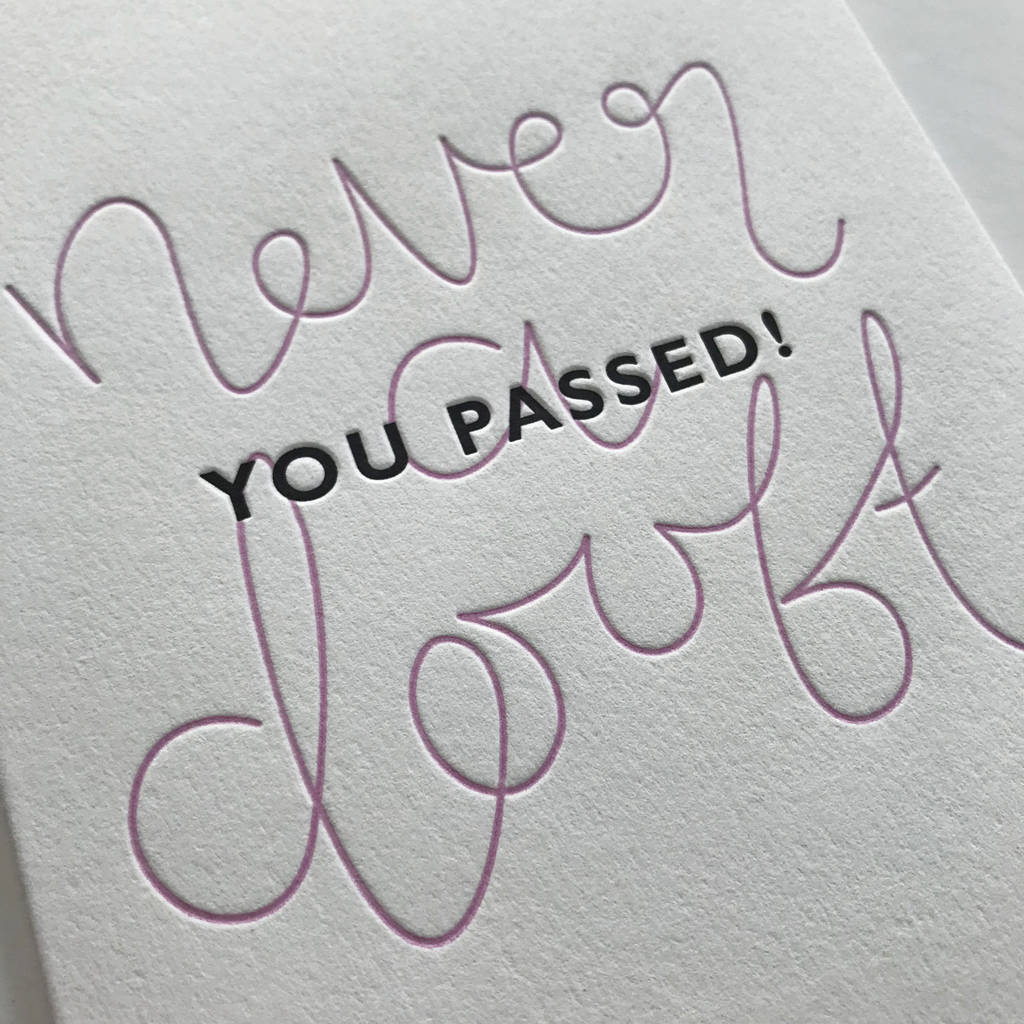 never
a
YOU PASSED!
doubt